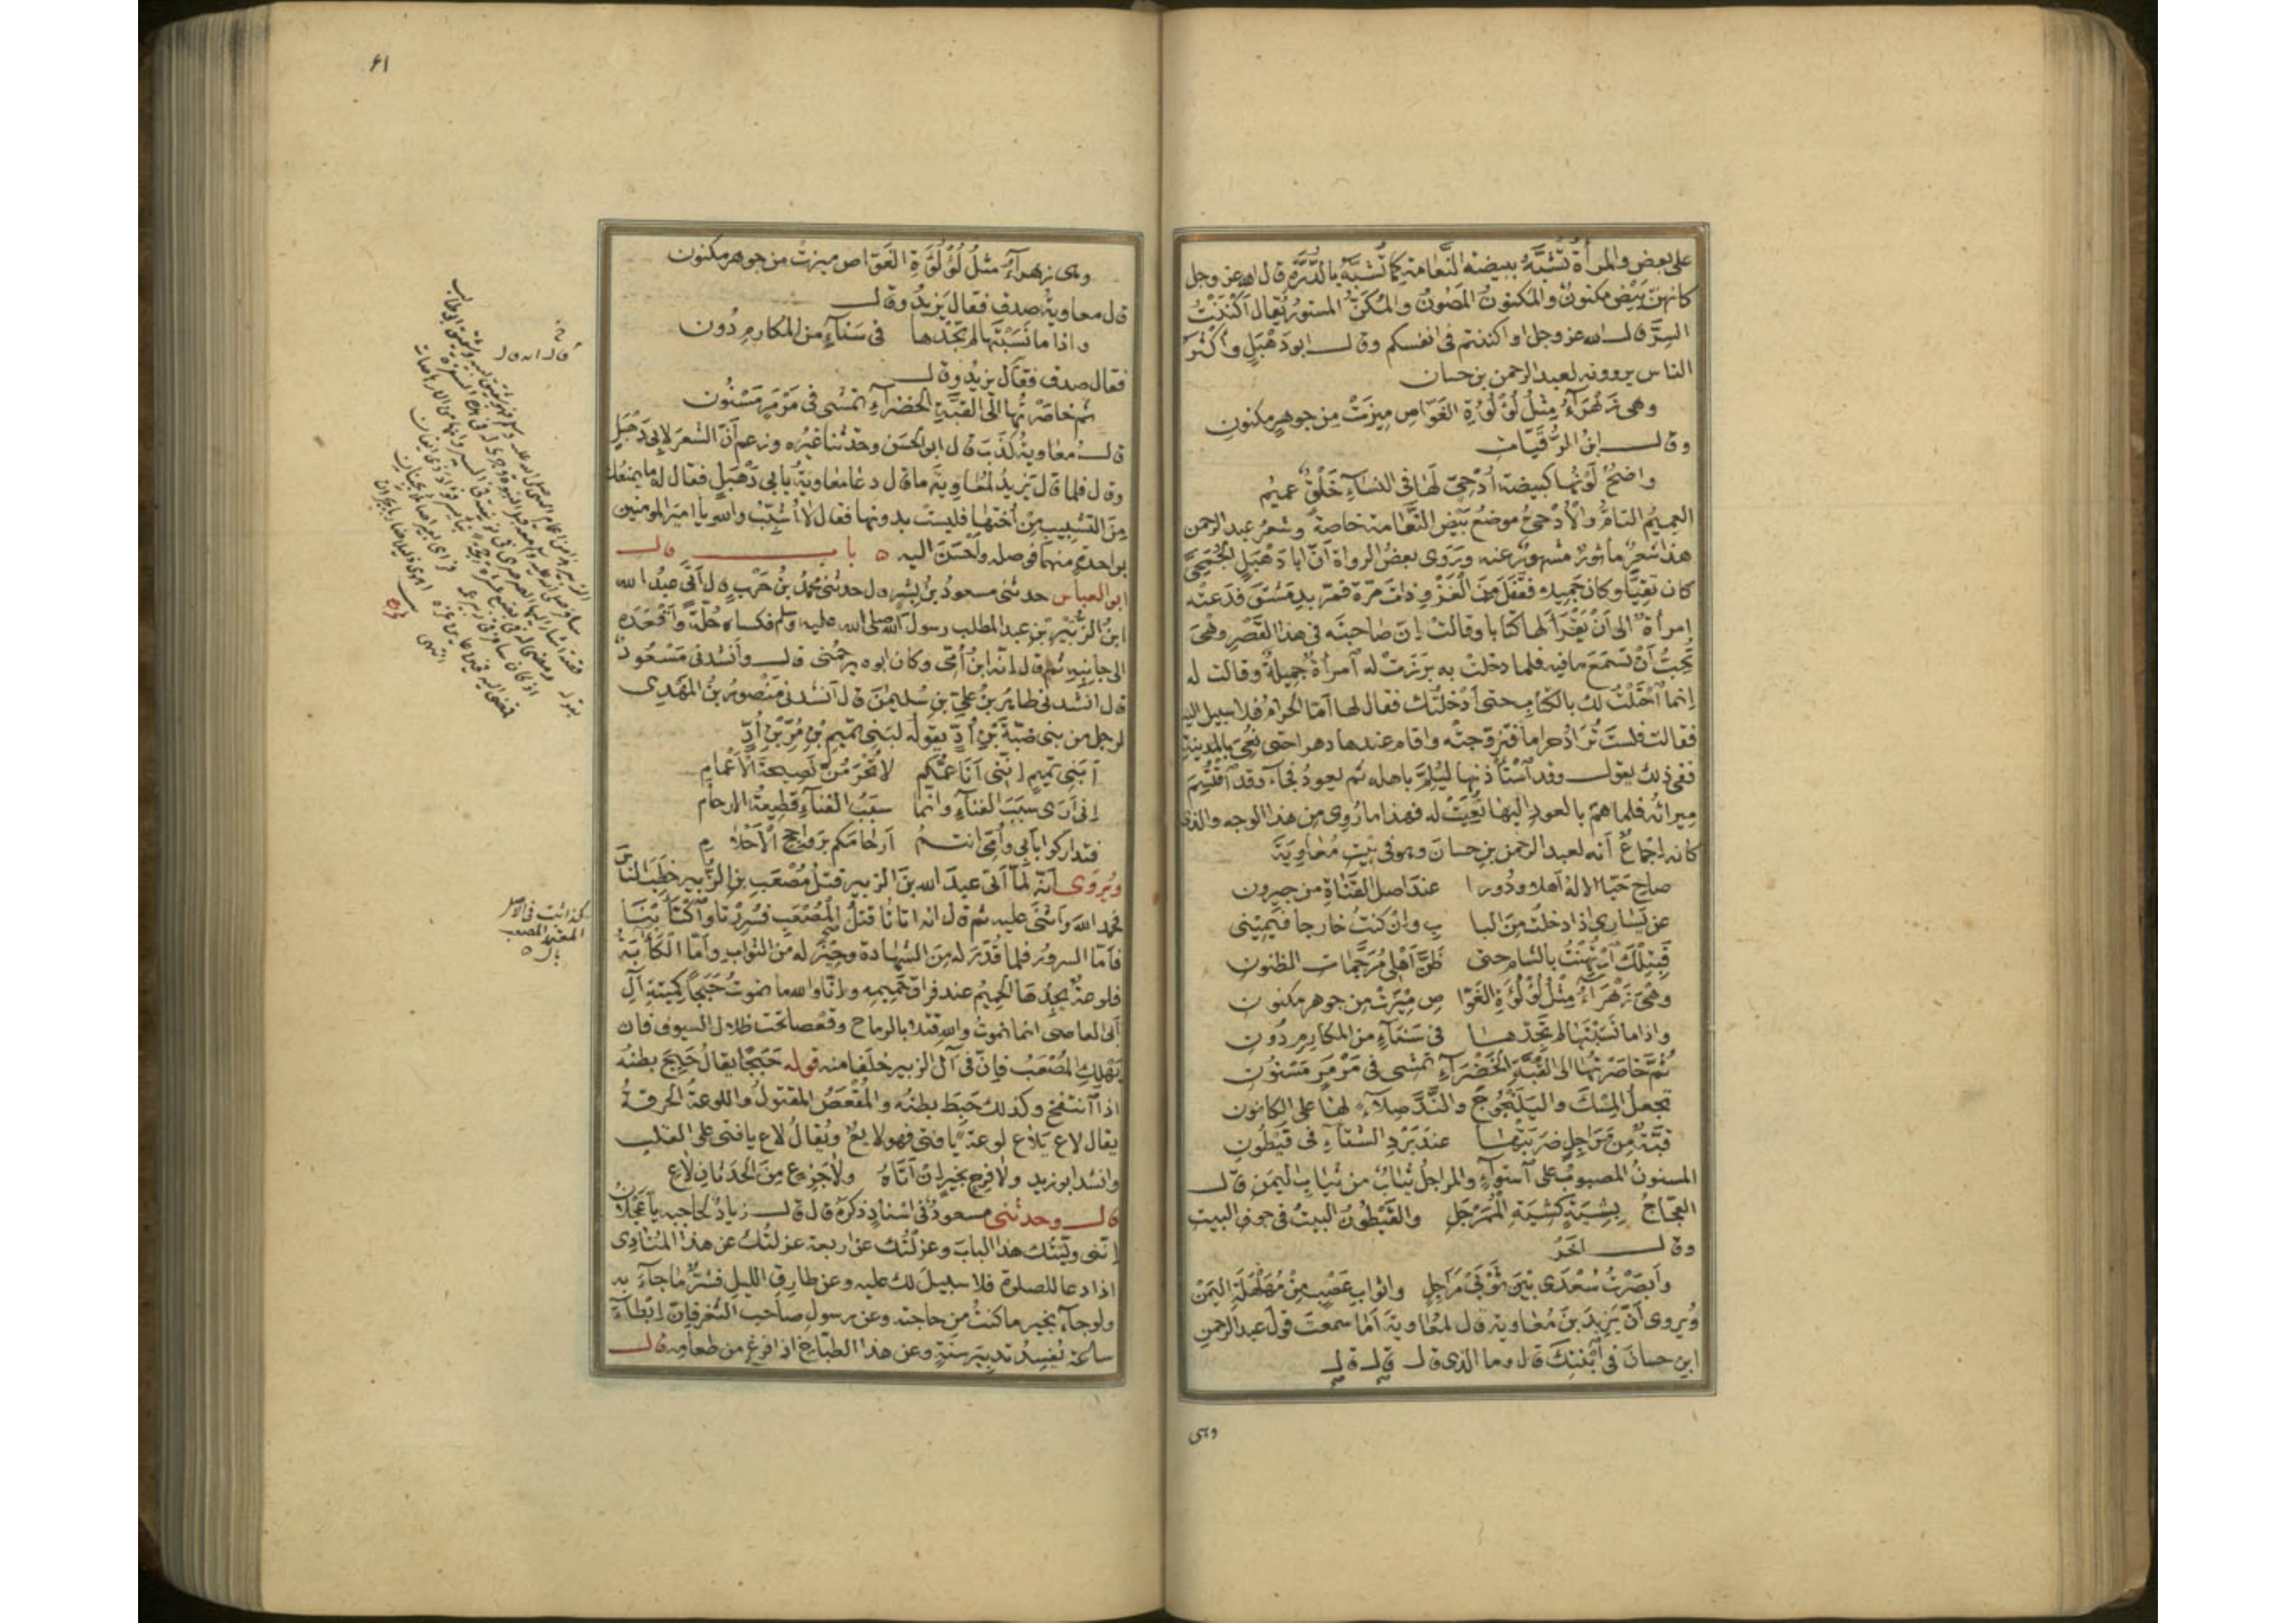 على بعض والمرأة تُشَبَّهُ ببيضة النَّعامة كما تُشَبَّهُ بالدُّرَّة قال الله عز وجل
كانهنّ بَيْض مكنونٌ والمكنونُ المَصُونُ والمُكَنُّ المستورُ يُقال أَكْنَنْتُ
السِرَّ قال الله عز وجل او اكننتم فى انفسكم وقال ابو دَهْبَلٍ وأكثر
الناس يروونه لعبد الرحمن بن حسان
وهى زَهْرَآءُ مِثْلُ لُؤْلُؤَةِ الغَوّاصِ مِيزَتْ مِن جوهرٍ مكنونِ
وقال ابنُ الرُّقَيّات
واضحٌ لَوْنُها كبيضة أُدْحِىّ لَها فى النسآءِ خَلْقٌ عميمُ
العميمُ التامُّ والأُدْحِىُّ موضعُ بَيْضِ النَّعَامة خاصةً وشعرُ عبد الرحمن
هذا شعرٌ مأثورٌ مشهورٌ عنه ورَوَى بعضُ الرواة أنّ ابا دَهْبَلٍ الجُمَحِىَّ
كان تَقِيًّا وكان جَمِيلا فقَفَلَ مِنَ الغَزْوِ ذاتَ مَرّة فمَرّ بدِمَشْقَ فدَعَتْه
إمرأةٌ الى أنْ يَقْرَأَ لها كتابا وقالت إنّ صاحبتَه فى هذا القَصْرِ وهْىَ
تُحِبُّ أنْ تَسْمَعَ ما فيه فلما دخلت به بَرَزَتْ له آمرأةٌ جميلةٌ وقالت له
إنما آحْتَلْتُ لك بالكتابِ حتى أَدْخَلْتُك فقال لها أمّا الحرامُ فلا سبيل اليه
فقالت فلستَ تُرَادُ حراما فتزوّجتْه واقام عندها دهرا حتى نُعِىَ بالمدينة
ففى ذلك يقول وقد آسْتَأْذنها ليُلِمَّ باهله ثم يعودُ فجاء وقد آقْتُسِمَ
ميراثُه فلما همّ بالعودِ إليها نُعِيَتْ له فهذا ما رُوِى من هذا الوجه والذى
كانه إجْماعٌ أنه لعبد الرحمن بن حسانَ وهو فى بنت مُعَاوِيَةَ
صاحِ حَيّا الالهُ أهلا ودُورا عندَ اصل القَنَاةِ من جيرون
عن يَسَارِى اذا دخلتُ مِنَ البا بِ وان كنتُ خارجا فيَمِينى
فبتلك آرْتُهِنتُ بالشام حتى ظنَّ أَهْلى مُرَجَّمات الظنون
وهْىَ زَهْرَآءُ مِثْلُ لُؤْلُؤَةِ الغَوّا صِ مِيْزَتْ من جوهر مكنون
واذا ما نَسَبْتَها لم تَجِدْها فى سَنَآءٍ من المكارم دُون
ثُمّ خاصَرْتُها الى القُبّةِ الخَضْرَآءِ تمشى فى مَرْمَرٍ مَسْنُون
تجعلُ المِسْكَ واليَلَنْجُوجَ والنَّدَّ صِلآءً لها على الكانون
قُبّةٌ مِن مَرَاجِلٍ ضرَبَتْها عندَ بَرْدِ الشتآءِ فى قَيْطُون
المسنونُ المصبوبُ على آستوآءٍ والمراجلُ ثيابٌ من ثياب اليَمَنِ قال
العجّاجُ بِشِيَةٍ كشِيَةِ المُمَرْجَلِ والقَيْطُونُ البيتُ فى جوف البيت
وقال آخَرُ
وأبصرتُ سُعْدَى بَيْنَ ثَوْبَىْ مَرَاجِلٍ واثوابِ عَصْبٍ مِنْ مُهَلْهَلَةِ اليَمَنْ
ويُروى أنّ يَزِيدَ بنَ مُعَاوية قال لمُعَاوية أما سمعتَ قولَ عبد الرحمنِ
ابن حسانَ فى آبْنتِكَ قال وما الذى قال قال قال
وهى
٦١
وهى زهرآءُ مثلُ لُؤْلُؤَةِ الغَوّاص ميزت من جوهر مكنون
قال معاويةُ صدق فقال يَزيدُ وقال
واذا ما نَسَبْتَها لم تَجِدْها فى سَنآءٍ من المكارم دُون
فقال صدق فقال يزيدُ وقال
ثم خاصَرْتُها الى القُبّةِ الخضرآءِ تمشى فى مَرْمَرٍ مَسْنُون
قال مُعَاويةُ كذَبَ قال ابو الحسن وحدثنا غيرُه وزعم أنّ الشعرَ لابى دَهْبَلٍ
وقال فلما قال يَزيدُ لمُعَاوِيَةَ ما قال دعا مُعَاويةُ بابى دَهْبَلٍ فقال له ما يمنعك
مِن التشبيب مِن أُختها فليست بدونها فقال لا أُشبّبُ والله يا امير المومنين
بواحدةٍ منهما فوصله وأحْسَنَ اليه ه باب قال
ابو العباس حدثنى مسعودُ بنُ بِشْرٍ قال حدثنى محمدُ بنُ حَرْبٍ قال أَتَى عبدُ الله
ابنُ الزُّبَيْرِ بنِ عبد المطلب رسولَ الله صلى الله عليه وسلم فكساه حُلّةً وأقعده
الى جانبه ثم قال إنه ابنُ أُمّى وكان ابوه يرحمُنى قال وأنشدنى مَسْعُودٌ
قال انشدنى طاهرُ بنُ علىّ بنِ سُليمن قال أنشدنى مَنْصورُ بنُ المَهْدِى
لرجلٍ من بنى ضَبّةَ بْنِ أُدّ يقوله لبَنِى تميم بْنِ مُرّ بْنِ أُدّ
أَبَنِى تَمِيمٍ إنّنى أنَا عَمُّكم لا تُحْرَمُنّ نَصِيحةَ الأعْمامِ
إنى أَرَى سَبَبَ الفنآءِ وانما سبَبُ الفنآءِ قطيعةُ الارحام
فتداركوا بأبى وأمّى انتم أرحامكم بروَاجح الأحلام
ويُروَى أنّه لمّا أتَى عبدَ الله بنَ الزبير قتلُ مُصْعَبِ بنِ الزُّبير خطبَ الناس
فحمد اللهَ وأثنَى عليه ثم قال انه اتانا قتلُ المُصْعَب فسُرِرْنا وآكْتَأَبْنا
فأمّا السرورُ فلما قُدّرَ له مِنَ الشهادة وحِيزَ له من الثواب وأمّا الكَآبَةُ
فلوعةٌ يجِدُها الحميمُ عند فراق حَمِيمِه وإنّا والله ما نموتُ حَبَجًا كمِيتةِ آلِ
أبى العاصى انما نموتُ والله قتلا بالرماح وقَعْصا تحت ظلال السيوف فان
يَهْلِكِ المُصْعَبُ فإنّ فى آلِ الزبير خلَفا منه قوله حَبَجًا يقالُ حَبِجَ بطنُه
اذا آنتفخ وكذلك حَبِطَ بطنُه والمُقْعَصُ المقتولُ واللوعةُ الحُرقةُ
يقال لاع يَلاع لوعةً يا فتى فهو لايعٌ ويُقالُ لاعٍ يا فتى على القلب
وانشد ابو زيد ولا فرِحٍ بخيرٍ إنْ أَتاهُ ولا جَزِعٍ مِنَ الحَدَثانِ لاعِ
قال وحدثنى مسعودٌ فى اسْنادٍ ذكرَهُ قال قال زيادٌ لحاجبه يا عَجْلانُ
إنّنى ولّيْتُك هذا البابَ وعزلتُك عن اربعة عزلتُك عن هذا المُنَادِى
اذا دعا للصلوة فلا سبيلَ لك عليه وعن طارِق الليل فشرٌّ ما جآءَ به
ولو جآء بخير ما كنتُ مِن حاجته وعن رسولِ صاحب الثغر فإنّ إبْطآءَ
ساعة يُفسِدُ تدبيرَ سنةٍ وعن هذا الطبّاخِ اذا فرغ من طعامِه قال
كذا أثبت فى الأصل